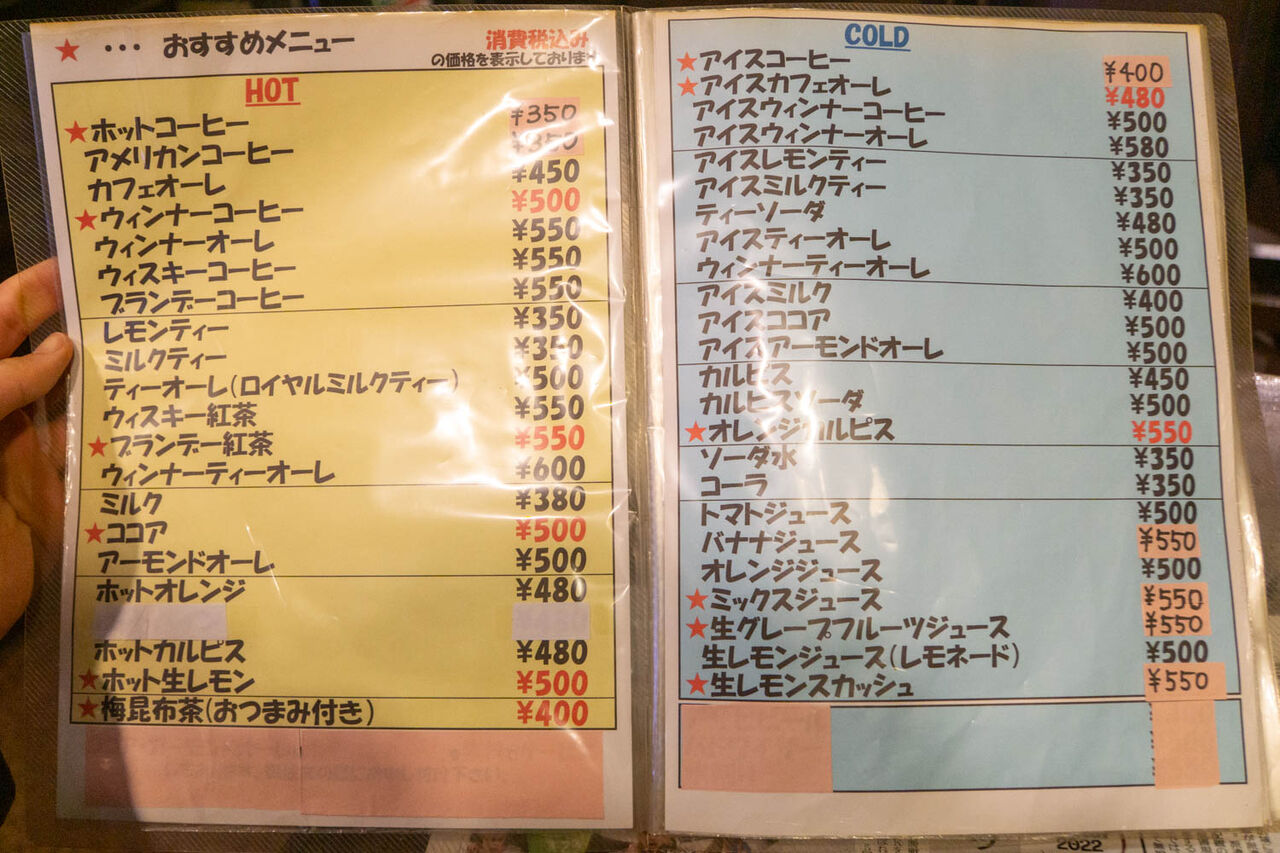 ★ ・・・ おすすめメニュー
消費税込み
の価格を表示しております
HOT
★ホットコーヒー ¥350
アメリカンコーヒー ¥350
カフェオーレ ¥450
★ウィンナーコーヒー ¥500
ウィンナーオーレ ¥550
ウィスキーコーヒー ¥550
ブランデーコーヒー ¥550
レモンティー ¥350
ミルクティー ¥350
ティーオーレ(ロイヤルミルクティー) ¥500
ウィスキー紅茶 ¥550
★ブランデー紅茶 ¥550
ウィンナーティーオーレ ¥600
ミルク ¥380
★ココア ¥500
アーモンドオーレ ¥500
ホットオレンジ ¥480
ホットカルピス ¥480
★ホット生レモン ¥500
★梅昆布茶(おつまみ付き) ¥400
COLD
★アイスコーヒー ¥400
★アイスカフェオーレ ¥480
アイスウィンナーコーヒー ¥500
アイスウィンナーオーレ ¥580
アイスレモンティー ¥350
アイスミルクティー ¥350
ティーソーダ ¥480
アイスティーオーレ ¥500
ウィンナーティーオーレ ¥600
アイスミルク ¥400
アイスココア ¥500
アイスアーモンドオーレ ¥500
カルピス ¥450
カルピスソーダ ¥500
★オレンジカルピス ¥550
ソーダ水 ¥350
コーラ ¥350
トマトジュース ¥500
バナナジュース ¥550
オレンジジュース ¥500
★ミックスジュース ¥550
★生グレープフルーツジュース ¥550
生レモンジュース(レモネード) ¥500
★生レモンスカッシュ ¥550
2022